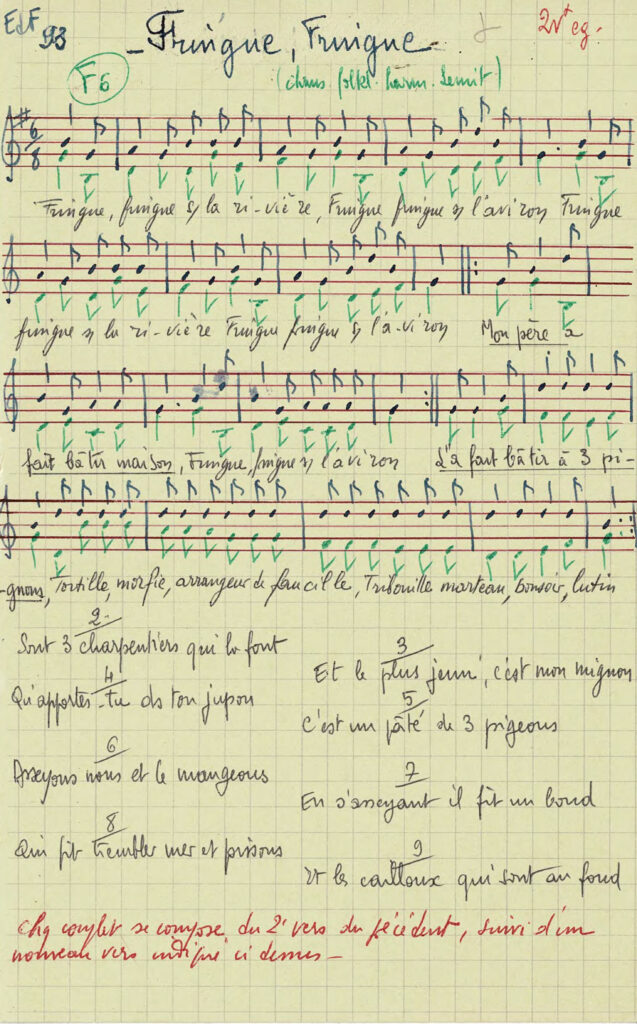 EdF 93
- Fringue, Fringue -
2V+ eg.
F6
(chans folkl. harm. Semit)
6/8
Fringue, fringue s/ la ri-vière, Fringue fringue s/ l'aviron Fringue
fringue s/ la ri-vière Fringue fringue s/ l'a-viron Mon père a
fait bâtir maison, Fringue, fringue s/ l'aviron L'a fait bâtir à 3 pi-
-gnons, Tortille, morfie, arrangeur de faucille, Tribouille marteau, bonsoir, lutin
2
Sont 3 charpentiers qui la font
3
Et le plus jeune, c'est mon mignon
4
Qu'apportes-tu ds ton jupon
5
C'est un pâté de 3 pigeons
6
Asseyons nous et le mangeons
7
En s'asseyant il fit un bond
8
Qui fit trembler mer et poissons
9
Et les cailloux qui sont au fond
Chq couplet se compose du 2e vers du précédent, suivi d'un
nouveau vers indiqué ci dessus -